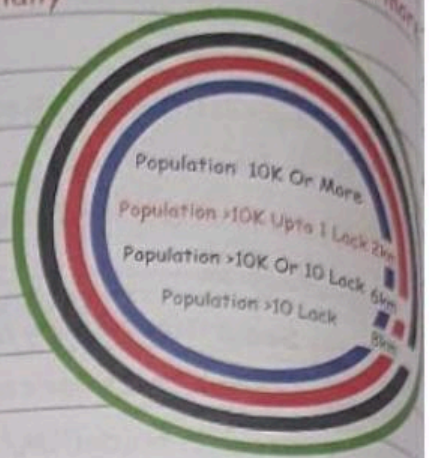 Population 10K Or More
Population >10K Upto 1 Lack 2km
Population >10K Or 10 Lack 6km
Population >10 Lack
8km